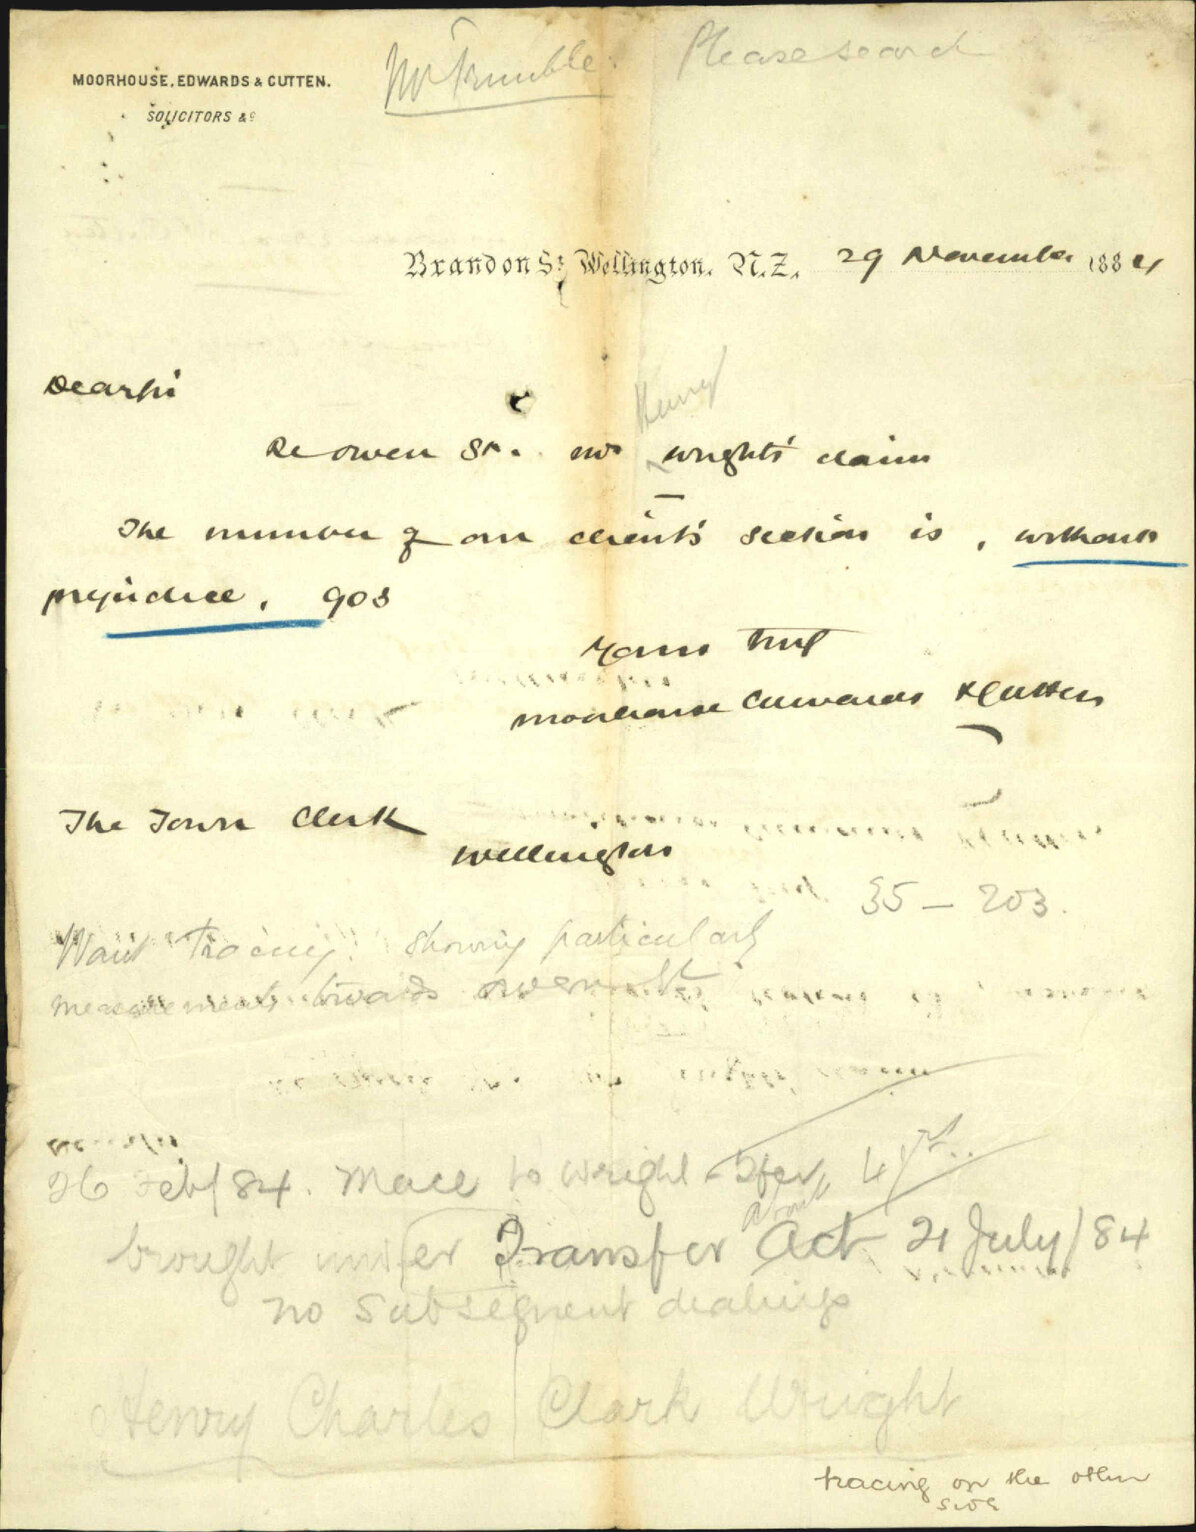 Mr Trimble. Please search
MOORHOUSE, EDWARDS & CUTTEN.
SOLICITORS &c
Brandon St Wellington. N.Z. 29 November 1884
Dear Sir
Henry
Re Owen St. Mr Wright's claim
The number of our client's section is, without
prejudice, 903
Yours truly
Moorhouse Edwards & Cutten
The Town Clerk
Wellington
35 – 203.
Want tracing showing particularly
measurements towards Owen St
26 Feb/84. Mace to Wright
about
brought under Transfer Act 21 July/84
no subsequent dealings
Henry Charles Clark Wright
tracing on the other
side